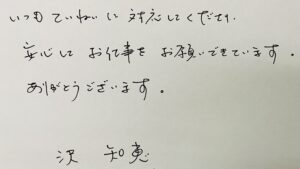 いつもていねいに対応してくださり、
安心してお仕事をお願いできています。
ありがとうございます。
沢 知恵